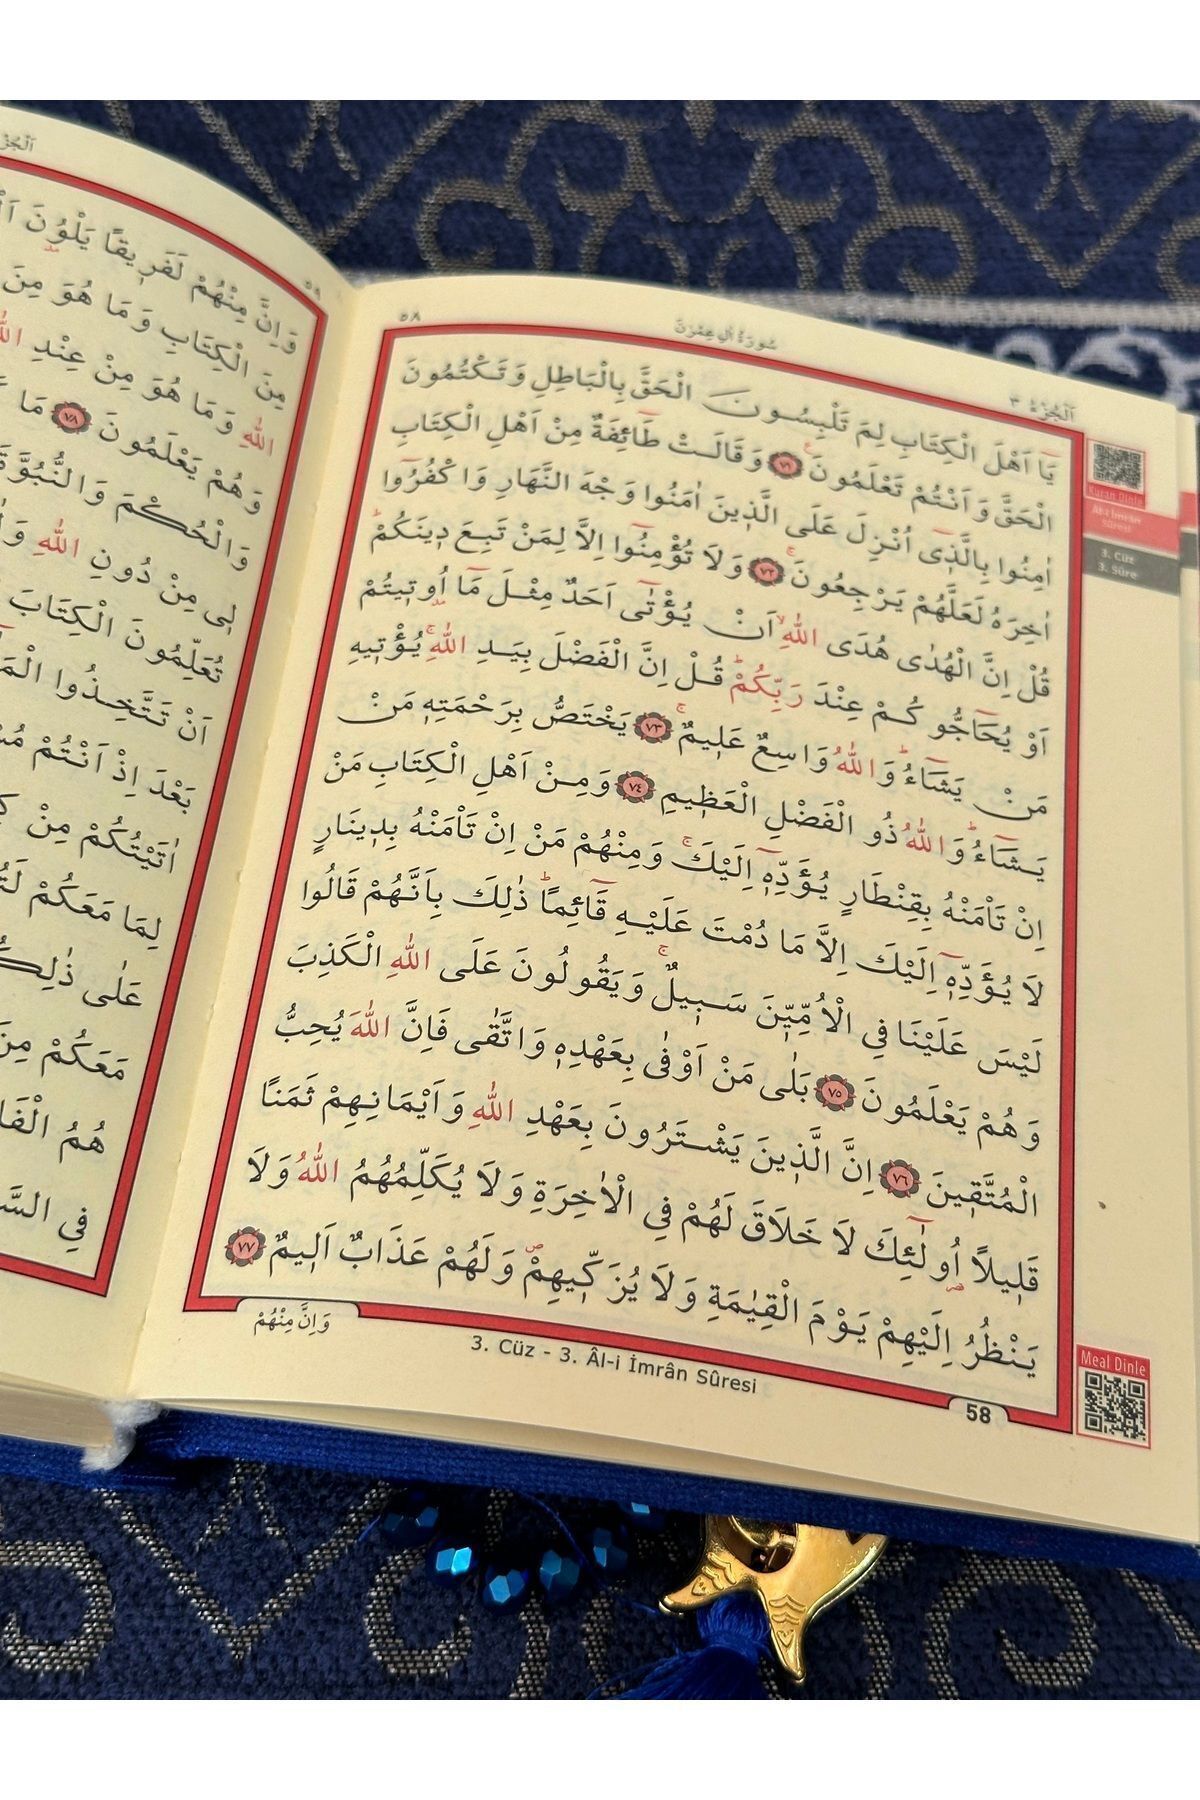 ٥٨
سُورَةُ اٰلِ عِمْرٰنَ
اَلْجُزْءُ ٣
يَٓا اَهْلَ الْكِتَابِ لِمَ تَلْبِسُونَ الْحَقَّ بِالْبَاطِلِ وَتَكْتُمُونَ
الْحَقَّ وَاَنْتُمْ تَعْلَمُونَۚ ﴿٧١﴾ وَقَالَتْ طَٓائِفَةٌ مِنْ اَهْلِ الْكِتَابِ
اٰمِنُوا بِالَّذ۪ٓي اُنْزِلَ عَلَى الَّذ۪ينَ اٰمَنُوا وَجْهَ النَّهَارِ وَاكْفُرُٓوا
اٰخِرَهُ لَعَلَّهُمْ يَرْجِعُونَۚ ﴿٧٢﴾ وَلَا تُؤْمِنُٓوا اِلَّا لِمَنْ تَبِعَ د۪ينَكُمْۜ
قُلْ اِنَّ الْهُدٰى هُدَى اللّٰهِۙ اَنْ يُؤْتٰٓى اَحَدٌ مِثْلَ مَٓا اُو۫ت۪يتُمْ
اَوْ يُحَٓاجُّوكُمْ عِنْدَ رَبِّكُمْۜ قُلْ اِنَّ الْفَضْلَ بِيَدِ اللّٰهِۚ يُؤْت۪يهِ
مَنْ يَشَٓاءُۜ وَاللّٰهُ وَاسِعٌ عَل۪يمٌۚ ﴿٧٣﴾ يَخْتَصُّ بِرَحْمَتِه۪ مَنْ
يَشَٓاءُۜ وَاللّٰهُ ذُو الْفَضْلِ الْعَظ۪يمِ ﴿٧٤﴾ وَمِنْ اَهْلِ الْكِتَابِ مَنْ
اِنْ تَأْمَنْهُ بِقِنْطَارٍ يُؤَدِّه۪ٓ اِلَيْكَۚ وَمِنْهُمْ مَنْ اِنْ تَأْمَنْهُ بِد۪ينَارٍ
لَا يُؤَدِّه۪ٓ اِلَيْكَ اِلَّا مَا دُمْتَ عَلَيْهِ قَٓائِمًاۜ ذٰلِكَ بِاَنَّهُمْ قَالُوا
لَيْسَ عَلَيْنَا فِي الْاُمِّيّ۪نَ سَب۪يلٌۚ وَيَقُولُونَ عَلَى اللّٰهِ الْكَذِبَ
وَهُمْ يَعْلَمُونَ ﴿٧٥﴾ بَلٰى مَنْ اَوْفٰى بِعَهْدِه۪ وَاتَّقٰى فَاِنَّ اللّٰهَ يُحِبُّ
الْمُتَّق۪ينَ ﴿٧٦﴾ اِنَّ الَّذ۪ينَ يَشْتَرُونَ بِعَهْدِ اللّٰهِ وَاَيْمَانِهِمْ ثَمَنًا
قَل۪يلًا اُو۬لٰٓئِكَ لَا خَلَاقَ لَهُمْ فِي الْاٰخِرَةِ وَلَا يُكَلِّمُهُمُ اللّٰهُ وَلَا
يَنْظُرُ اِلَيْهِمْ يَوْمَ الْقِيٰمَةِ وَلَا يُزَكّ۪يهِمْۖ وَلَهُمْ عَذَابٌ اَل۪يمٌ ﴿٧٧﴾
وَاِنَّ مِنْهُمْ
3. Cüz - 3. Âl-i İmrân Sûresi
58
Kuran Dinle
Âl-i İmran
Sûresi
3. Cüz
3. Sûre
Meal Dinle
٥٩
وَاِنَّ مِنْهُمْ لَفَر۪يقًا يَلْوُ۫نَ
مِنَ الْكِتَابِ وَمَا هُوَ مِنَ
اللّٰهِ وَمَا هُوَ مِنْ عِنْدِ
وَهُمْ يَعْلَمُونَ ﴿٧٨﴾ مَا
وَالْحُكْمَ وَالنُّبُوَّةَ
ل۪ي مِنْ دُونِ اللّٰهِ
تُعَلِّمُونَ الْكِتَابَ
اَنْ تَتَّخِذُوا
بَعْدَ اِذْ اَنْتُمْ
اٰتَيْتُكُمْ مِنْ
لِمَا مَعَكُمْ
عَلٰى
مَعَكُمْ مِنَ
هُمُ
فِي